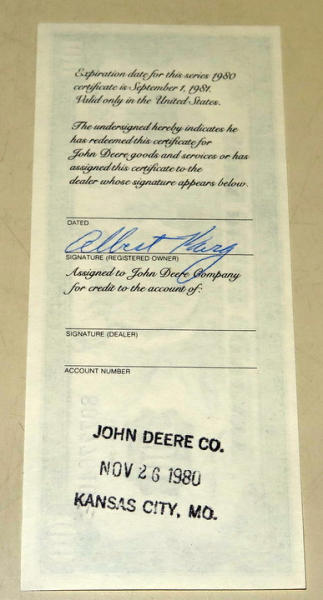 Expiration date for this series 1980
certificate is September 1, 1981.
Valid only in the United States.
The undersigned hereby indicates he
has redeemed this certificate for
John Deere goods and services or has
assigned this certificate to the
dealer whose signature appears below.
DATED
Albert Karg
SIGNATURE (REGISTERED OWNER)
Assigned to John Deere Company
for credit to the account of:
SIGNATURE (DEALER)
ACCOUNT NUMBER
JOHN DEERE CO.
NOV 26 1980
KANSAS CITY, MO.